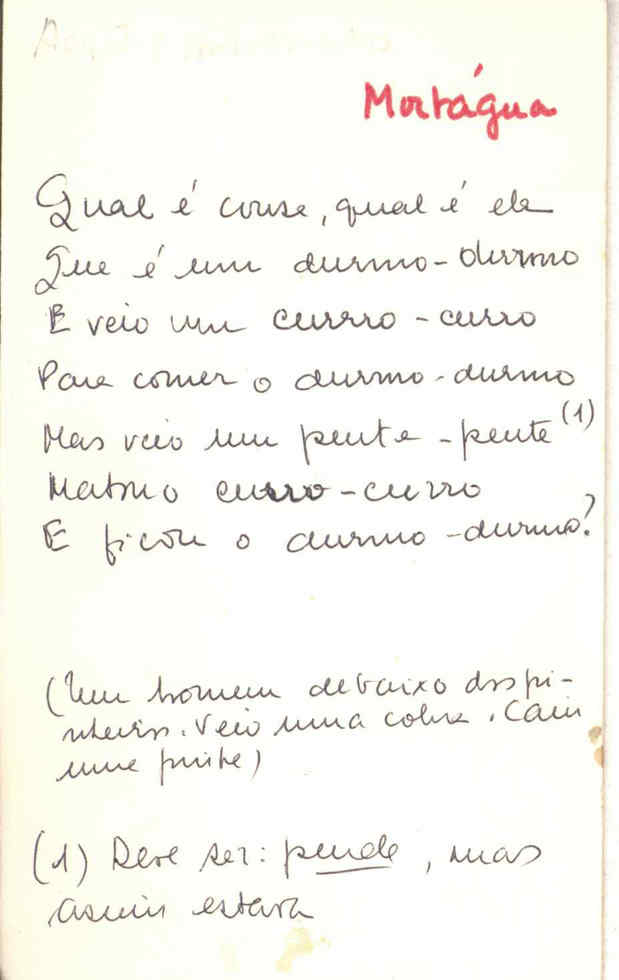 Mortágua
Qual é cousa, qual é ela
Que é um durmo-durmo
E veio um curro-curro
Para comer o durmo-durmo
Mas veio um pente-pente (1)
Matou o curro-curro
E ficou o durmo-durmo?
(Um homem debaixo dos pi-
nheiros. Veio uma cobra. Caiu
uma pinha)
(1) Deve ser: pende, mas
assim estava